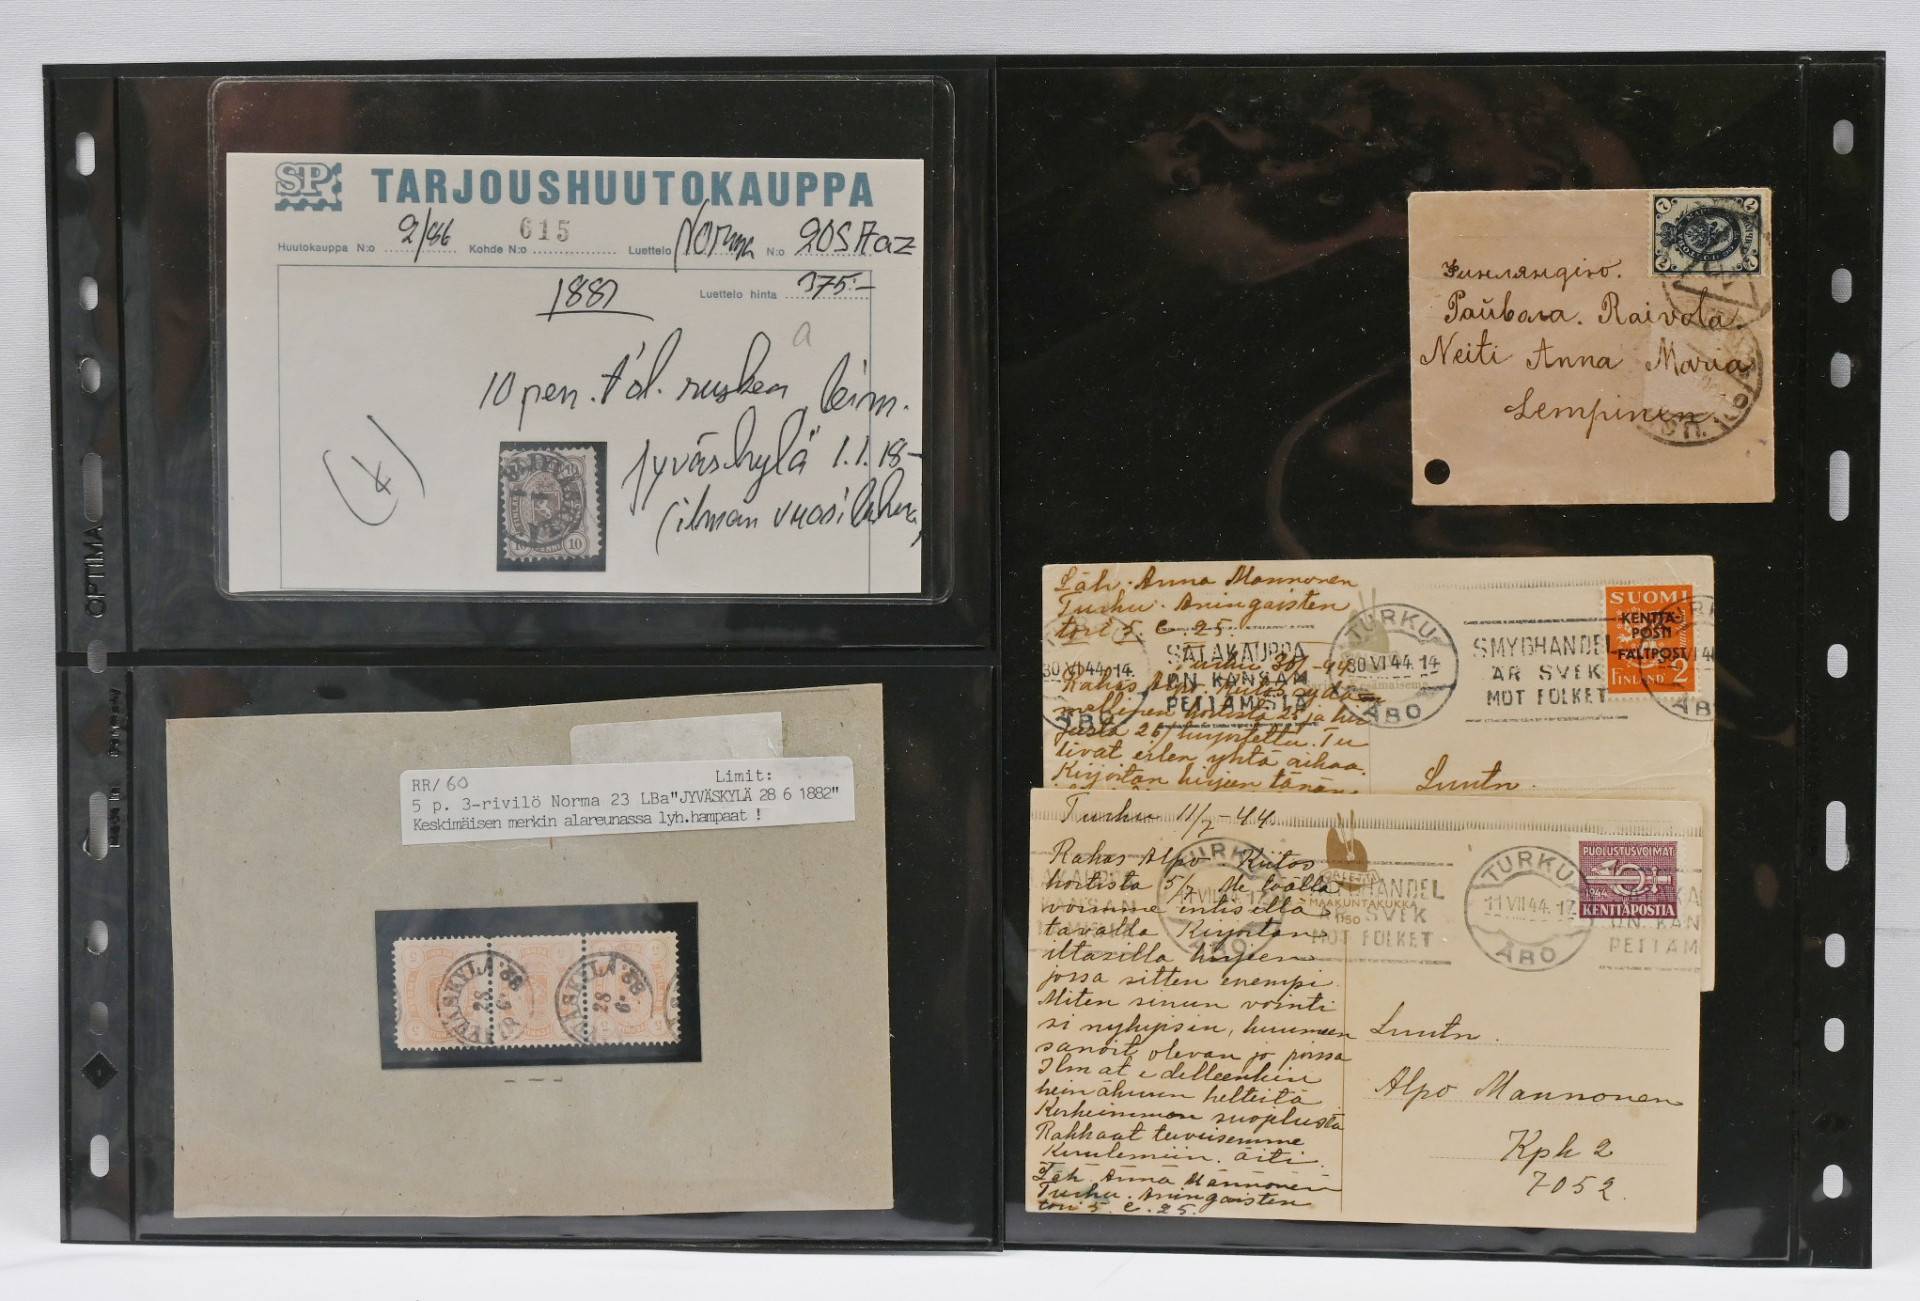 SP TARJOUSHUUTOKAUPPA
Huutokauppa N:o 2/86 Kohde N:o 615 Luettelo Norma N:o 20S7az
Luettelo hinta 375:-
1881
a
10 pen. t'ol. ruskea leim.
Jyväskylä 1.1.18-
(ilman vuosilukua)
10 10
OPTIMA
RR/60 Limit:
5 p. 3-rivilö Norma 23 LBa"JYVÄSKYLÄ 28 6 1882"
Keskimäisen merkin alareunassa lyh.hampaat !
JYVÄSKYLÄ
28
6
7 7
Финляндiю.
Райвола. Raivola.
Neiti Anna Maria
Lempinen.
Läh. Anna Mannonen
Turku. Aningaisten
tori 5. C. 25.
Turku 30/-44
Rahas Alpo. Kiitos sydä-
mellinen kortista 25 ja kir-
jeestä 26/ kirjoitettu. Tu
livat eilen yhtä aikaa.
Kirjoitan kirjeen tänän
SALAKAUPPA
ON KANSAN
PETTÄMISTÄ
TURKU
30 VI 44.14
ÅBO
SMYGHANDEL
ÄR SVEK
MOT FOLKET
SUOMI
KENTTÄ-
POSTI
FÄLTPOST
FINLAND 2
Luutn.
Turku 11/7-44
Rahas Alpo. Kiitos
kortista 5/7. Me täällä
voimme entisellä
tavalla. Kirjoitan
iltasilla kirjeen
jossa sitten enempi.
Miten sinun vointi
si nykyisin, kuumeen
sanoit olevan jo poissa
Ilmat edelleenkin
heinäkuun helteitä
Korkeimman suojelusta
Rakkaat terveisemme
Kuulemiin. äiti.
Läh. Anna Mannonen
Turku. Aningaisten
tori 5. C. 25.
MAAKUNTAKUKKA
1150
SMYGHANDEL
ÄR SVEK
MOT FOLKET
TURKU
11 VII 44.17
ÅBO
PUOLUSTUSVOIMAT
1944
KENTTÄPOSTIA
ON KAN
PETTÄM
Luutn.
Alpo Mannonen
Kpk 2
7052.